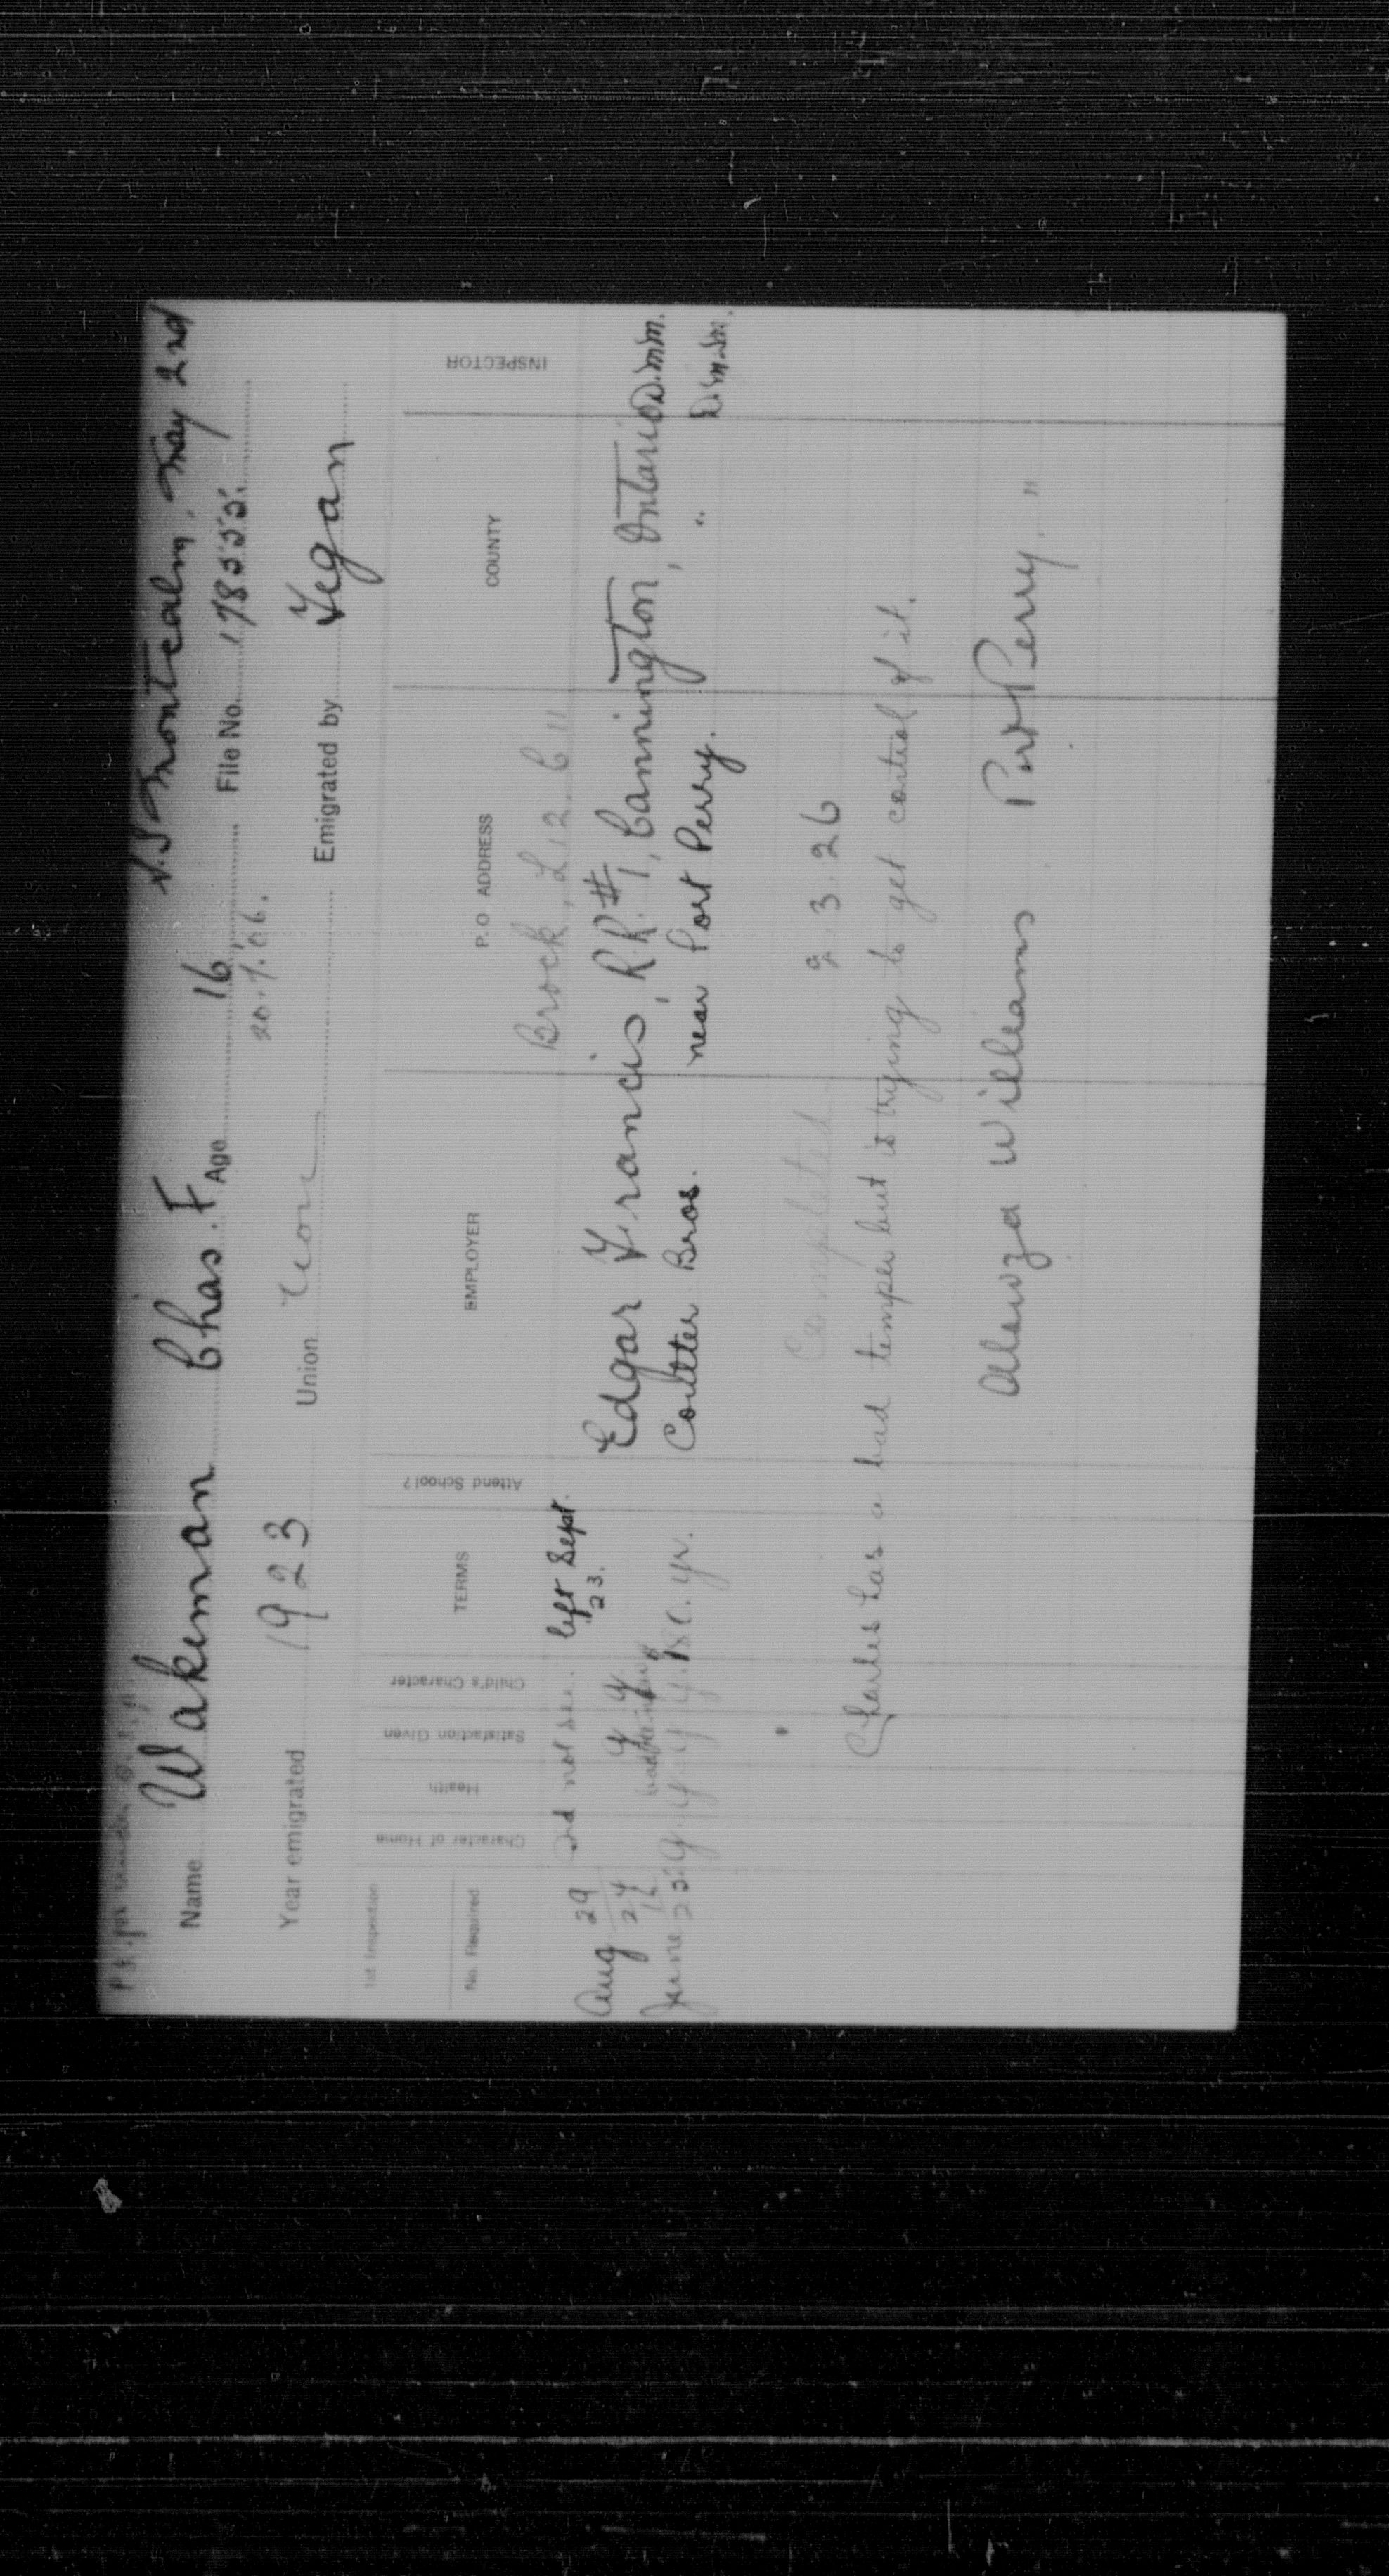 P.C. for
S.S. Montcalm, May 2nd
Name Wakeman Chas. F. Age 16 File No. 17855.
20.7.06.
Year emigrated 1923 Union non Emigrated by Fegan
1st Inspection
No. Required Character of Home Health Satisfaction Given Child's Character TERMS Attend School? EMPLOYER P.O ADDRESS COUNTY INSPECTOR
Brock, L12. C 11
Aug 29/24 Did not see. left Sept. 23. Edgar Francis, R.R.#1, Cannington, Ontario D.M.M.
June 12 25. G. G. G. G. 180. yr. Coultter Bros. near Port Perry. " D.M.M.
Completed 2.3.26
Charles has a bad temper but is trying to get control of it.
Alonza Williams Port Perry. "